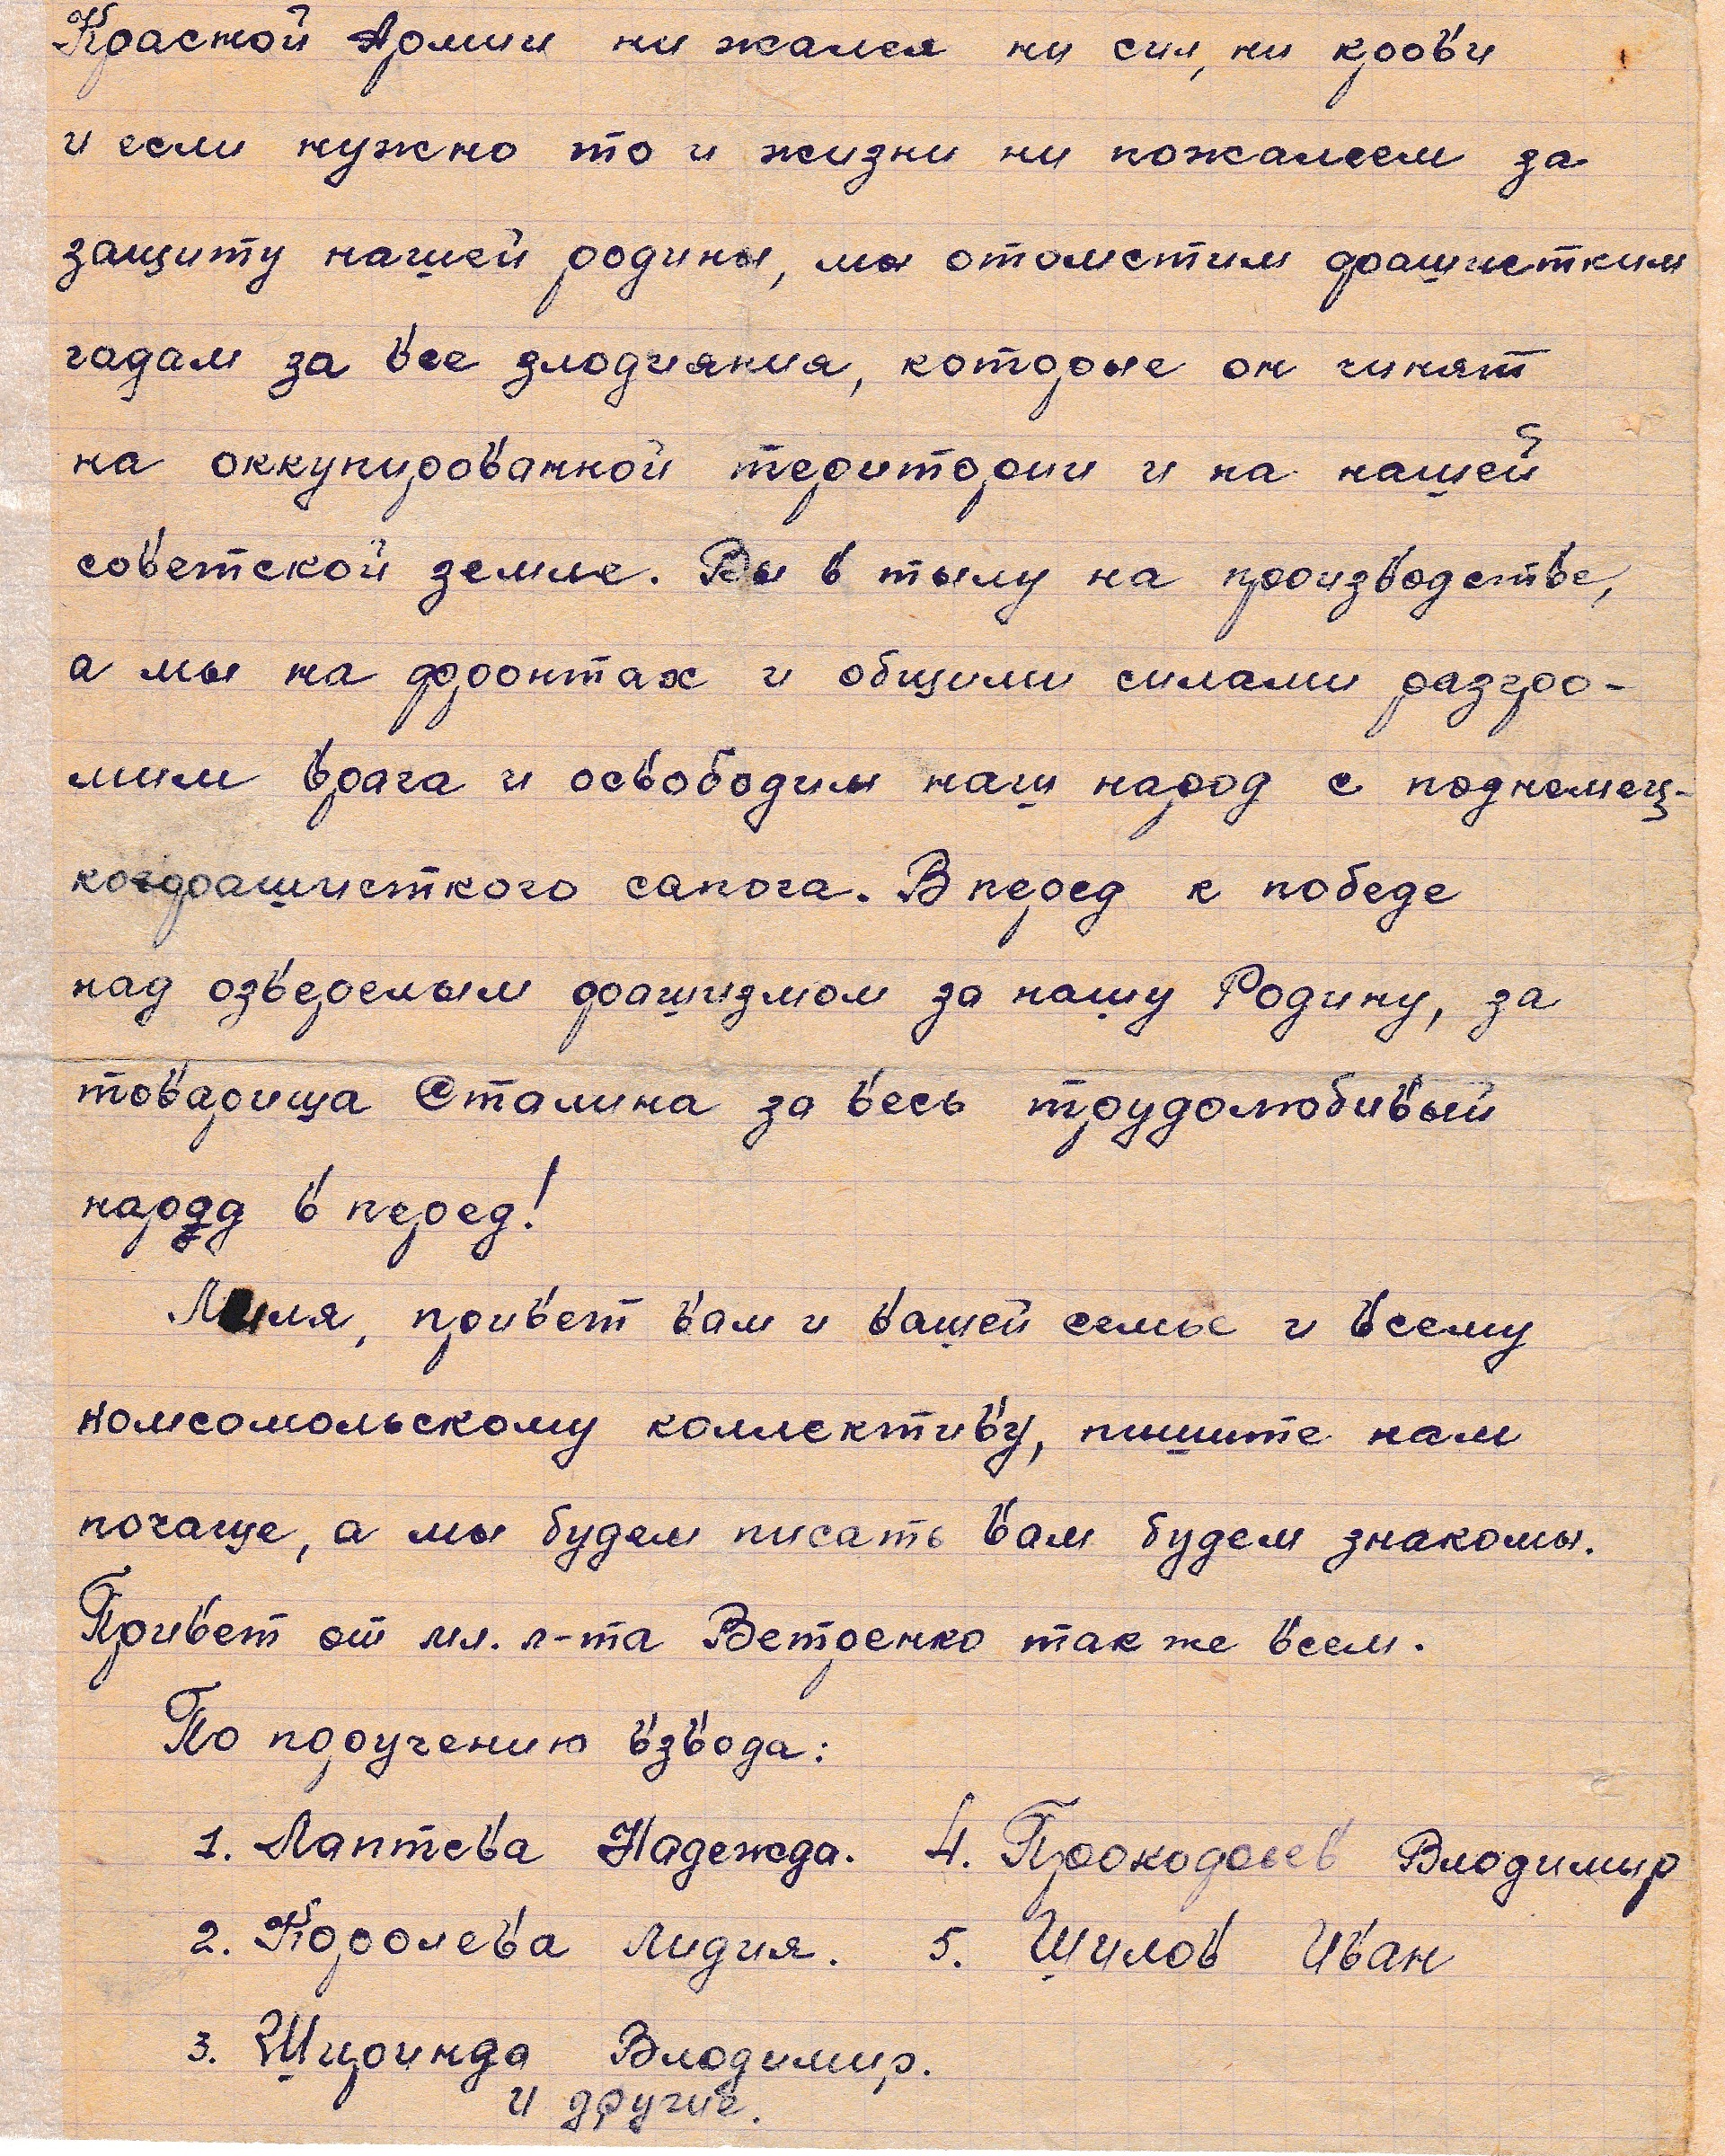 Красной Армии ни жалея ни сил, ни крови
и если нужно то и жизни ни пожалеем за
защиту нашей родины, мы отомстим фашистким
гадам за все злодияния, которые он чинят
на оккупированной територии и на нашей
советской земле. Вы в тылу на производстве,
а мы на фронтах и общими силами разгро-
мим врага и освободим наш народ с поднемец-
кофашисткого сапога. В перед к победе
над озверелым фашизмом за нашу Родину, за
товарища Сталина за весь трудолюбивый
народ в перед!
Миля, привет вам и вашей семье и всему
комсомольскому коллективу, пишите нам
почаще, а мы будем писать вам будем знакомы.
Привет от мл. л-та Ветренко так же всем.
По поручению взвода:
1. Лаптева Надежда. 4. Прокофьев Владимир
2. Королева Лидия. 5. Шилов Иван
3. Владимир.
и другие.